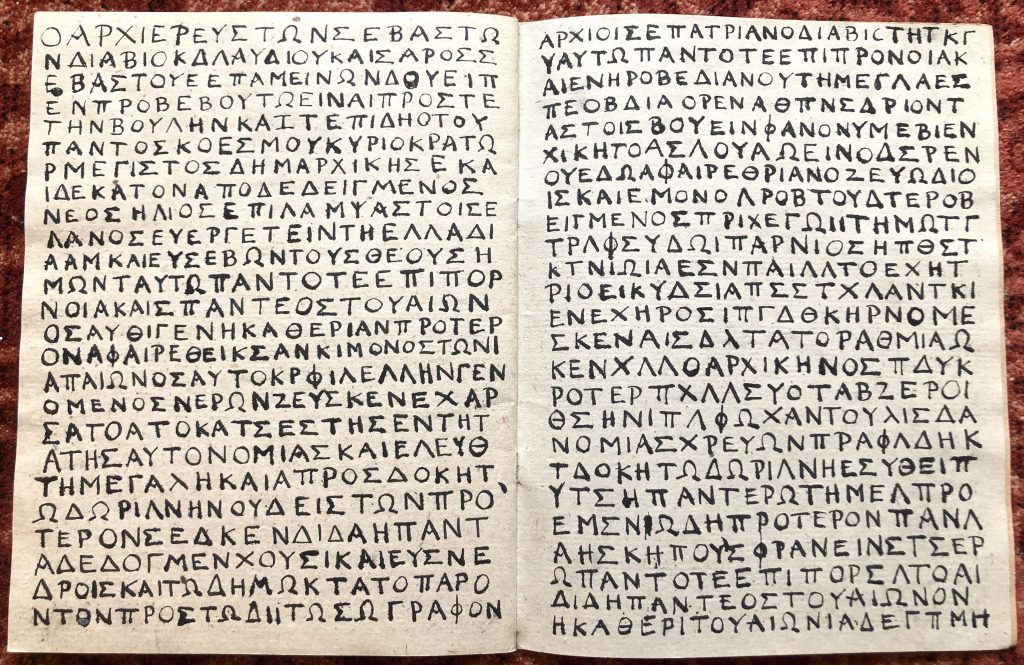 ΟΑΡΧΙΕΡΕΥΣΤΩΝΣΕΒΑΣΤΩ
ΝΔΙΑΒΙΟΚΔΛΑΥΔΙΟΥΚΑΙΣΑΡΟΣΣ
ΕΒΑΣΤΟΥΕΕΠΑΜΕΙΝΩΝΔΟΥΕΙΠ
ΕΝΠΡΟΒΕΒΟΥΤΩΕΙΝΑΙΠΡΟΣΤΕ
ΤΗΝΒΟΥΛΗΝΚΑΙΤΕΠΙΔΗΟΤΟΥ
ΠΑΝΤΟΣΚΟΕΣΜΟΥΚΥΡΙΟΚΡΑΤΩ
ΡΜΕΓΙΣΤΟΣΔΗΜΑΡΧΙΚΗΣΕΚΑ
ΙΔΕΚΑΤΟΝΑΠΟΔΕΔΕΙΓΜΕΝΟΣ
ΝΕΟΣΗΛΙΟΣΕΠΙΛΑΜΥΑΣΤΟΙΣΕ
ΛΑΝΟΣΕΥΕΡΓΕΤΕΙΝΤΗΕΛΛΑΔΙ
ΑΑΜΚΑΙΕΥΣΕΒΩΝΤΟΥΣΘΕΟΥΣΗ
ΜΩΝΤΑΥΤΩΠΑΝΤΟΤΕΕΠΙΠΟΡ
ΝΟΙΑΚΑΙΣΠΑΝΤΕΟΣΤΟΥΑΙΩΝ
ΟΣΑΥΘΙΓΕΝΗΚΑΘΕΡΙΑΝΠΡΟΤΕΡ
ΟΝΑΦΑΙΡΕΘΕΙΚΣΑΝΚΙΜΟΝΟΣΤΩΝΙ
ΑΠΑΙΩΝΟΣΑΥΤΟΚΡΦΙΛΕΛΛΗΝΓΕΝ
ΟΜΕΝΟΣΝΕΡΩΝΖΕΥΣΚΕΝΕΧΑΡ
ΣΑΤΟΑΤΟΚΑΤΣΕΣΤΗΣΕΝΤΗΤ
ΑΤΗΣΑΥΤΟΝΟΜΙΑΣΚΑΙΕΛΕΥΘ
ΤΗΜΕΓΑΧΗΚΑΙΑΠΡΟΣΔΟΚΗΤ
ΩΔΩΡΙΛΝΗΝΟΥΔΕΙΣΤΩΝΠΡΟ
ΤΕΡΟΝΣΕΔΚΕΝΔΙΔΑΗΠΑΝΤ
ΑΔΕΔΟΓΜΕΝΧΟΥΣΙΚΑΙΕΥΣΝΕ
ΔΡΟΙΣΚΑΙΤΩΔΗΜΩΚΤΑΤΟΠΑΡΟ
ΝΤΟΝΠΡΟΣΤΩΔΙΙΤΩΣΩΓΡΑΦΟΝ
ΑΡΧΙΟΙΣΕΠΑΤΡΙΑΝΟΔΙΑΒΙΣΤΗΤΚΓ
ΥΑΥΤΩΠΑΝΤΟΤΕΕΠΙΠΡΟΝΟΙΑΚ
ΑΙΕΝΗΡΟΒΕΔΙΑΝΟΥΤΗΜΕΓΛΑΕΣ
ΠΕΟΒΔΙΑΟΡΕΝΑΘΠΝΣΔΡΙΟΝΤ
ΑΣΤΟΙΣΒΟΥΕΙΝΦΑΝΟΝΥΜΕΒΙΕΝ
ΧΙΚΗΤΟΑΣΛΟΥΑΩΕΙΝΟΔΣΡΕΝ
ΟΥΕΔΩΑΦΑΙΡΕΘΡΙΑΝΟΖΕΥΩΔΙΟ
ΙΣΚΑΙΕ.ΜΟΝΟΛΡΟΒΤΟΥΔΤΕΡΟΒ
ΕΙΓΜΕΝΟΣΠΡΙΧΕΓΩΙΙΤΗΜΩΤΓ
ΤΡΛΦΣΥΔΩΙΠΑΡΝΙΟΣΗΠΘΣΤ
ΚΤΝΙΩΙΑΕΣΝΠΑΙΛΛΤΟΕΧΗΤ
ΡΙΟΕΙΚΥΔΣΙΑΠΣΣΤΧΛΑΝΤΚΙ
ΕΝΕΧΗΡΟΣΙΠΓΔΘΚΗΡΝΟΜΕ
ΣΚΕΝΑΙΣΔΛΤΑΤΟΡΑΘΜΙΑΩ
ΚΕΝΧΛΛΟΑΡΧΙΚΗΝΟΣΠΔΥΚ
ΡΟΤΕΡΠΧΛΛΣΥΟΤΑΒΖΕΡΟΙ
ΘΣΗΝΙΠΛΦΩΧΑΝΤΟΥΛΙΣΔΑ
ΝΟΜΙΑΣΧΡΕΥΩΝΠΡΑΦΛΔΗΚ
ΤΔΟΚΗΤΩΔΩΡΙΛΝΗΕΣΥΘΕΙΠ
ΥΤΣΗΠΑΝΤΕΡΩΤΗΜΕΛΠΡΟ
ΕΜΣΝΙΩΔΗΠΡΟΤΕΡΟΝΠΑΝΛ
ΑΗΣΚΗΠΟΥΣΦΡΑΝΕΙΝΣΤΣΕΡ
ΩΠΑΝΤΟΤΕΕΠΙΠΟΡΣΛΤΟΑΙ
ΔΙΔΗΠΑΝΤΕΟΣΤΟΥΑΙΩΝΟΝ
ΗΚΑΘΕΡΙΤΟΥΑΙΩΝΙΑΔΕΓΠΜΗ